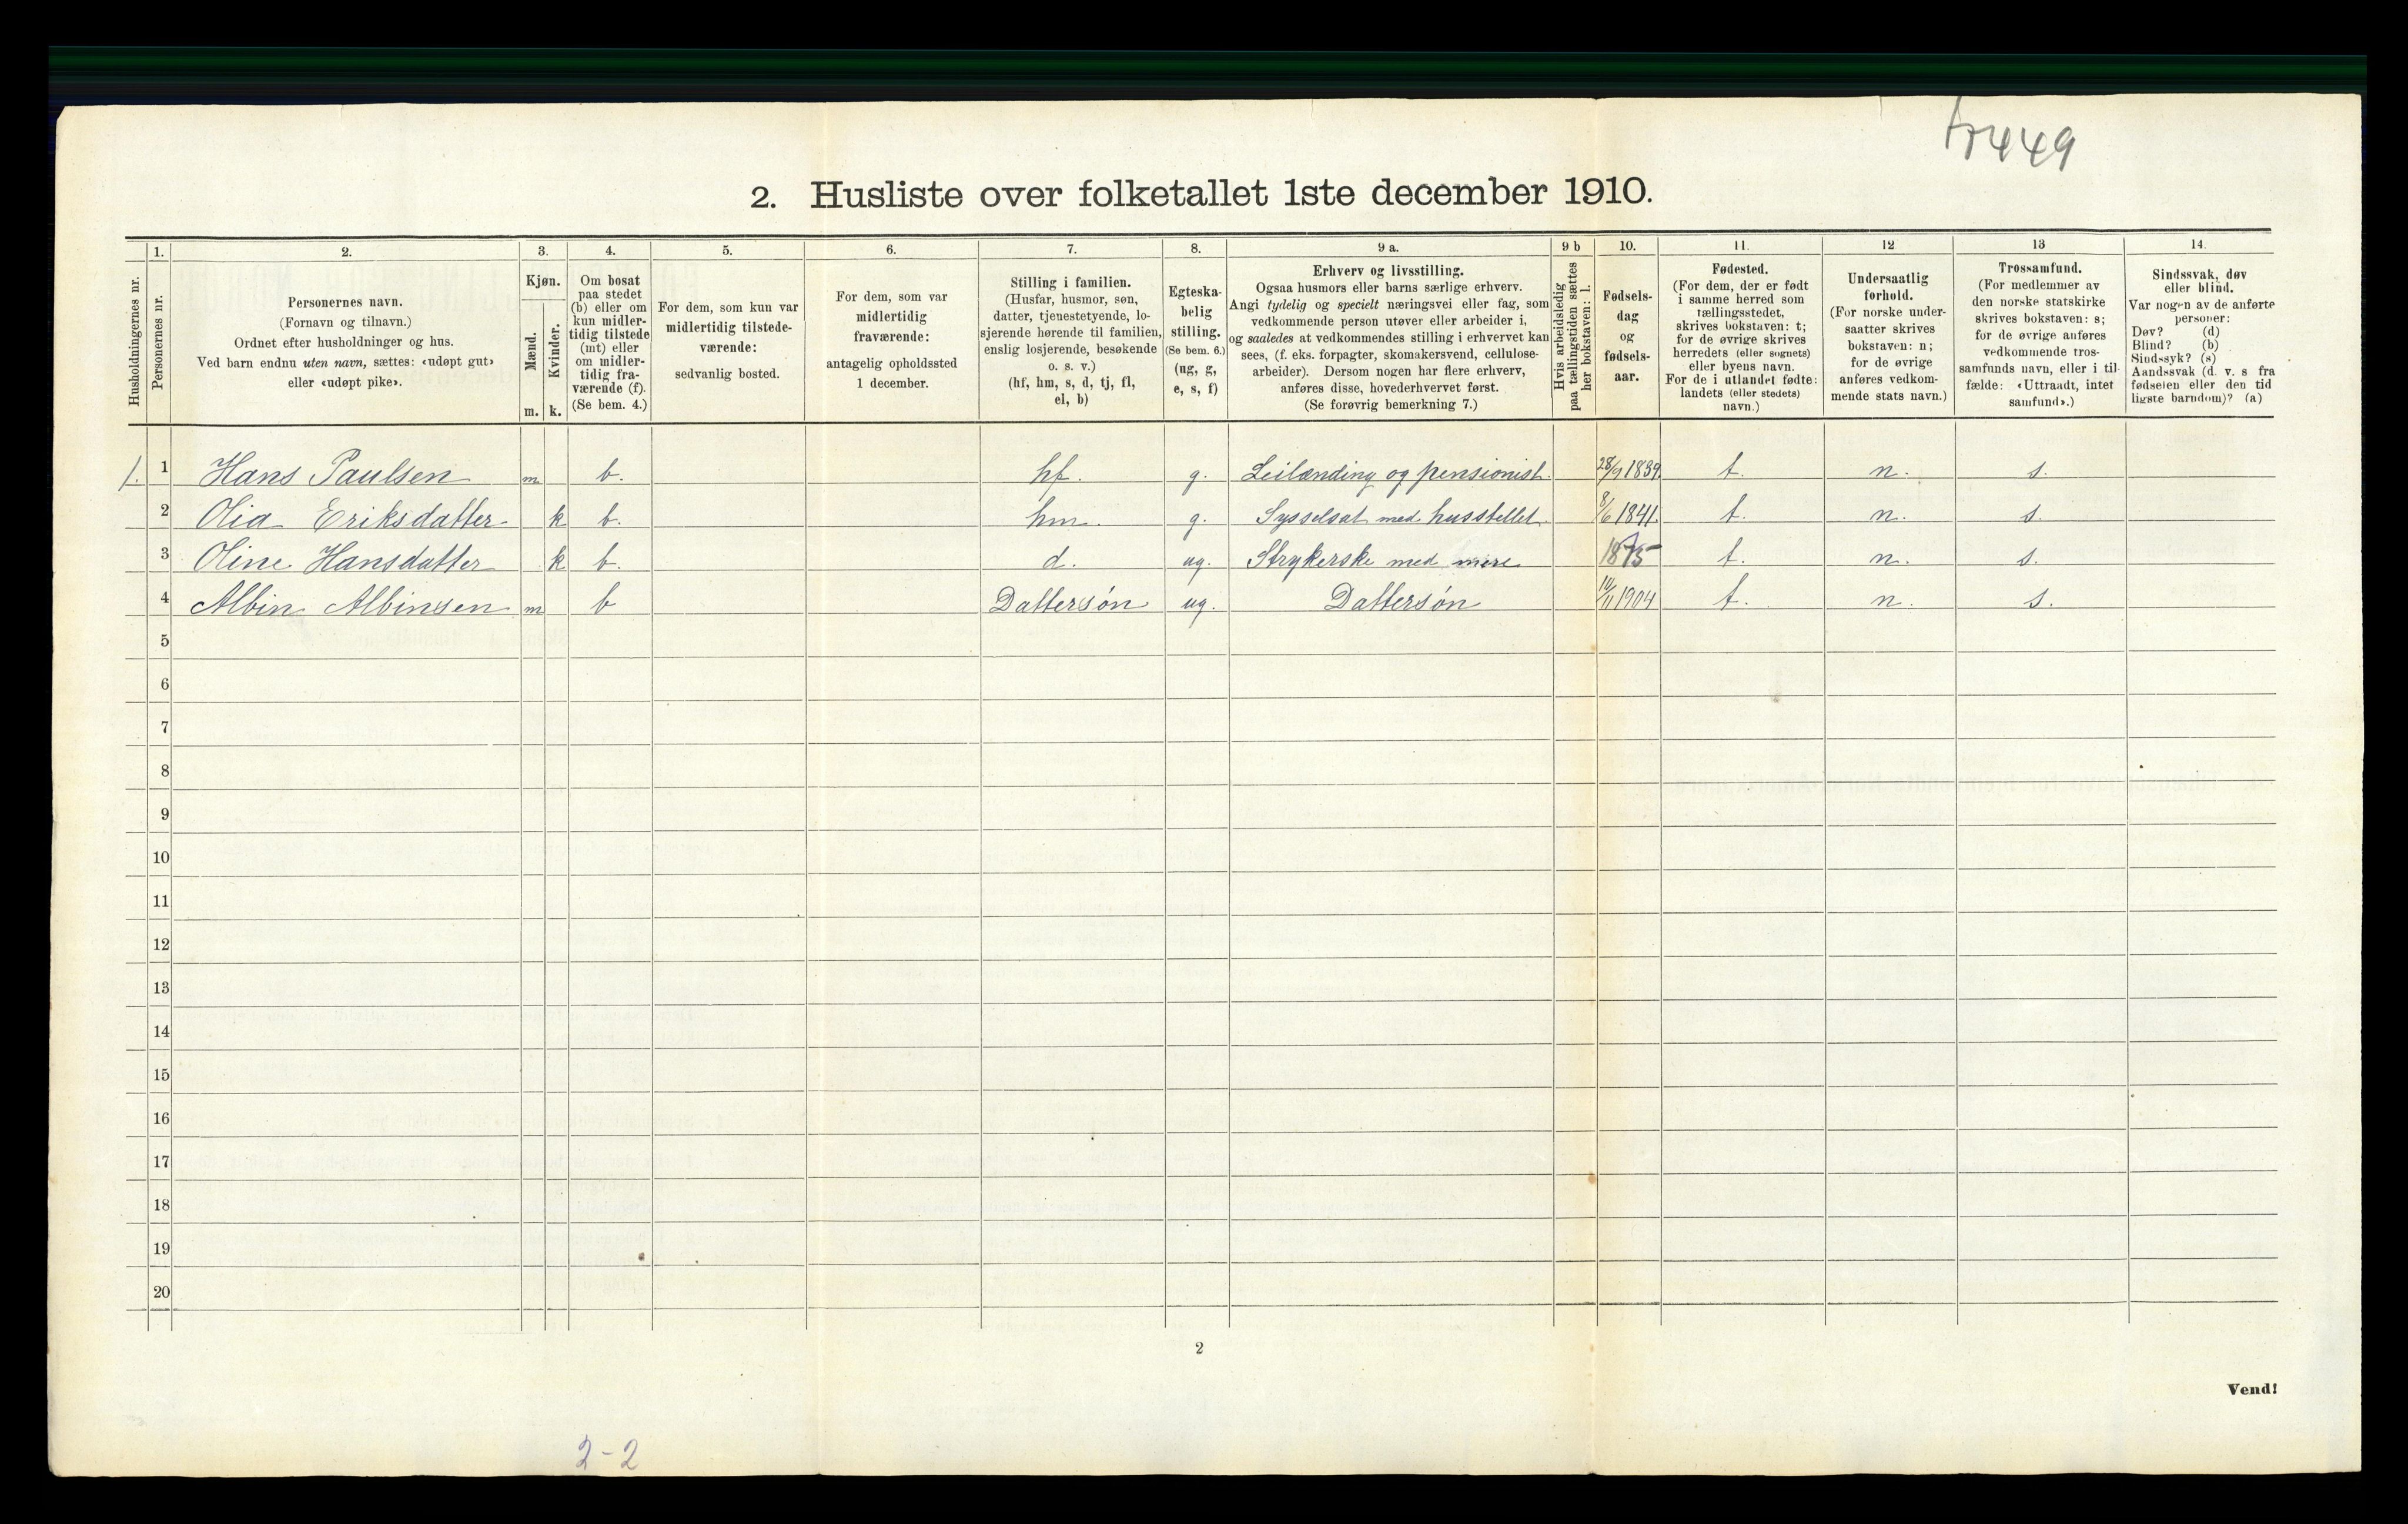 449
2. Husliste over folketallet 1ste december 1910.
Husholdningernes nr.
1.
Personernes nr.
2.
Personernes navn.
(Fornavn og tilnavn.)
Ordnet efter husholdninger og hus.
Ved barn endnu uten navn, sættes: «udøpt gut»
eller «udøpt pike».
3.
Kjøn.
Mænd.
Kvinder.
m. k.
4.
Om bosat
paa stedet
(b) eller om
kun midler-
tidig tilstede
(mt) eller
om midler-
tidig fra-
værende (f).
(Se bem. 4.)
5.
For dem, som kun var
midlertidig tilstede-
værende:
sedvanlig bosted.
6.
For dem, som var
midlertidig
fraværende:
antagelig opholdssted
1 december.
7.
Stilling i familien.
(Husfar, husmor, søn,
datter, tjenestetyende, lo-
sjerende hørende til familien,
enslig losjerende, besøkende
o. s. v.)
(hf, hm, s, d, tj, fl,
el, b)
8.
Egteska-
belig
stilling.
(Se bem. 6.)
(ug, g,
e, s, f)
9 a.
Erhverv og livsstilling.
Ogsaa husmors eller barns særlige erhverv.
Angi tydelig og specielt næringsvei eller fag, som
vedkommende person utøver eller arbeider i,
og saaledes at vedkommendes stilling i erhvervet kan
sees, (f. eks. forpagter, skomakersvend, cellulose-
arbeider). Dersom nogen har flere erhverv,
anføres disse, hovederhvervet først.
(Se forøvrig bemerkning 7.)
9 b
Hvis arbeidsledig
paa tællingstiden sættes
her bokstaven: l.
10.
Fødsels-
dag
og
fødsels-
aar.
11.
Fødested.
(For dem, der er født
i samme herred som
tællingsstedet,
skrives bokstaven: t;
for de øvrige skrives
herredets (eller sognets)
eller byens navn.
For de i utlandet fødte:
landets (eller stedets)
navn.)
12
Undersaatlig
forhold.
(For norske under-
saatter skrives
bokstaven: n;
for de øvrige
anføres vedkom-
mende stats navn.)
13
Trossamfund.
(For medlemmer av
den norske statskirke
skrives bokstaven: s;
for de øvrige anføres
vedkommende tros-
samfunds navn, eller i til-
fælde: «Uttraadt, intet
samfund».)
14.
Sindssvak, døv
eller blind.
Var nogen av de anførte
personer:
Døv? (d)
Blind? (b)
Sindssyk? (s)
Aandssvak (d. v. s fra
fødselen eller den tid
ligste barndom)? (a)
1. 1 Hans Paulsen m b. hf. g. Leilænding og pensionist. 28/9 1839. t. n. s.
2 Olia Eriksdatter k b. hm. g. Sysselsat med husstellet. 8/6 1841. t. n. s.
3 Oline Hansdatter k b. d. ug. Strykerske med mere 1875 t. n. s.
4 Albin Albinsen m b Dattersøn ug. Dattersøn 11/11 1904 t. n. s.
5
6
7
8
9
10
11
12
13
14
15
16
17
18
19
20
2
Vend!
2-2